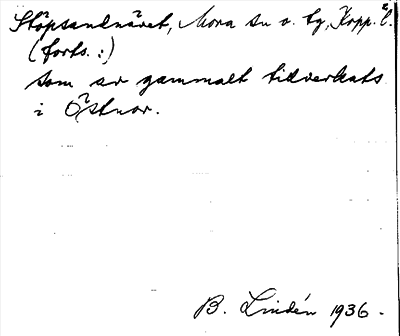 Stöpsandnäret, Mora sn o. tg, Kopp. l.
(forts. :)
som av gammalt tillverkats
i Östnor.
B. Lindén 1936.